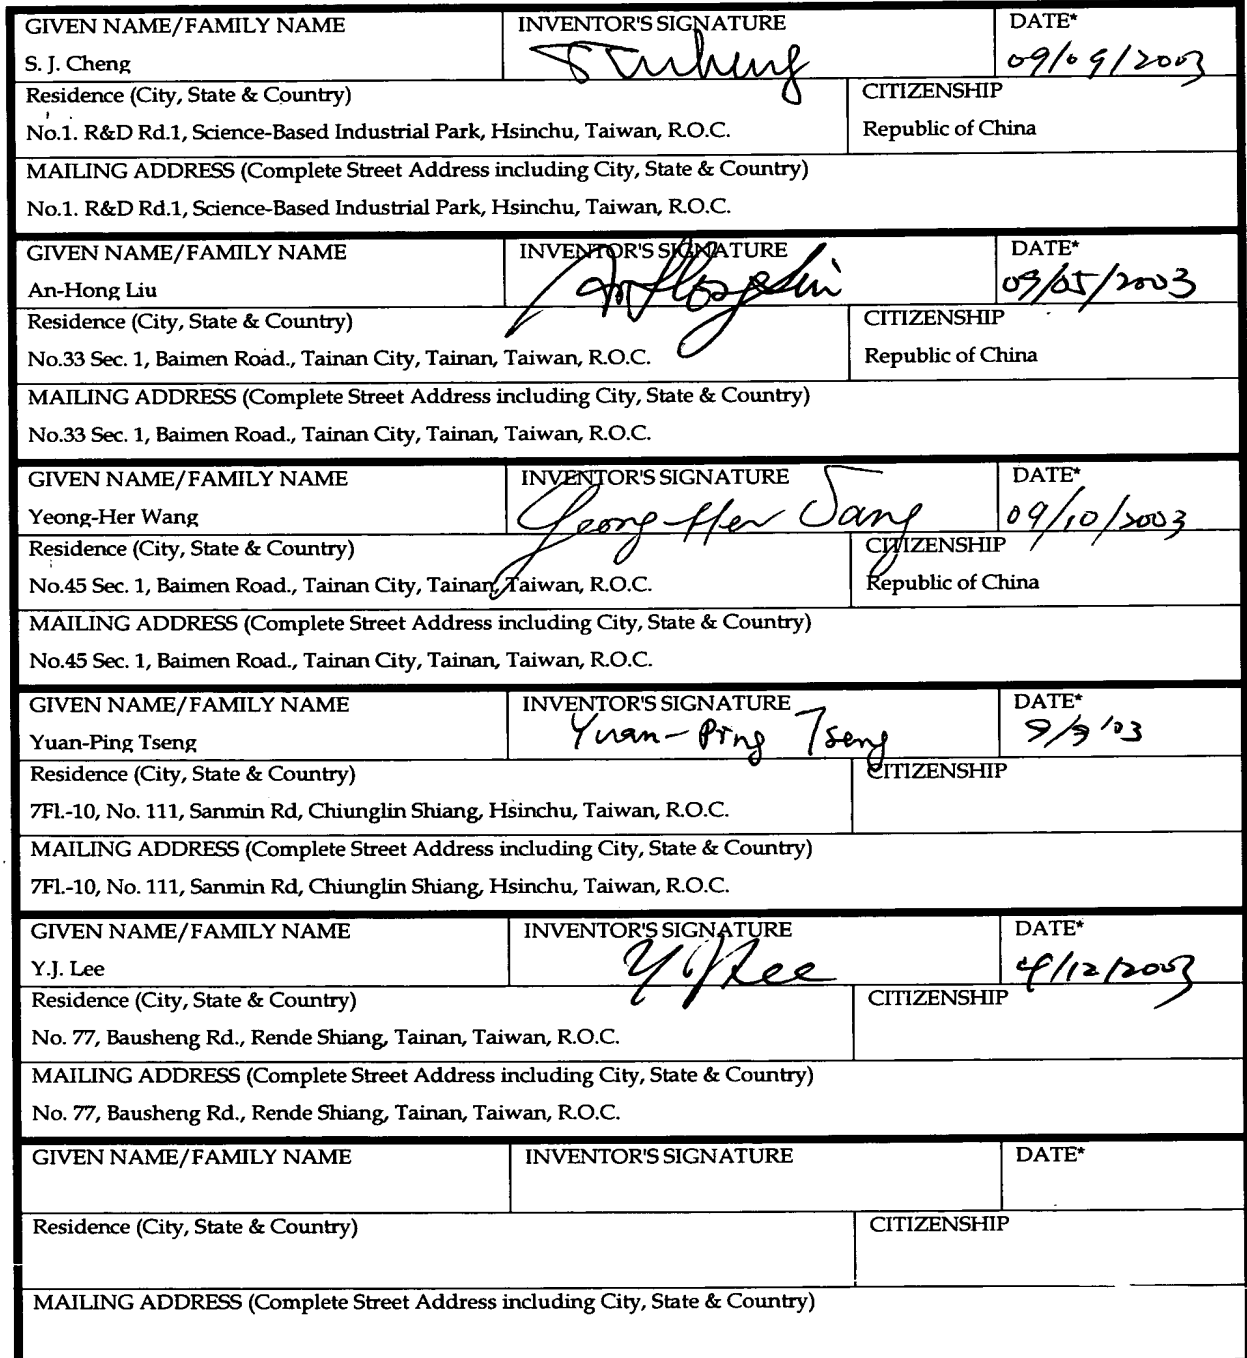 GIVEN NAME/FAMILY NAME INVENTOR'S SIGNATURE DATE*
S. J. Cheng 09/09/2003
Residence (City, State & Country) CITIZENSHIP
No.1. R&D Rd.1, Science-Based Industrial Park, Hsinchu, Taiwan, R.O.C. Republic of China
MAILING ADDRESS (Complete Street Address including City, State & Country)
No.1. R&D Rd.1, Science-Based Industrial Park, Hsinchu, Taiwan, R.O.C.
GIVEN NAME/FAMILY NAME INVENTOR'S SIGNATURE DATE*
An-Hong Liu An Hong Liu 09/05/2003
Residence (City, State & Country) CITIZENSHIP
No.33 Sec. 1, Baimen Road., Tainan City, Tainan, Taiwan, R.O.C. Republic of China
MAILING ADDRESS (Complete Street Address including City, State & Country)
No.33 Sec. 1, Baimen Road., Tainan City, Tainan, Taiwan, R.O.C.
GIVEN NAME/FAMILY NAME INVENTOR'S SIGNATURE DATE*
Yeong-Her Wang Yeong-Her Wang 09/10/2003
Residence (City, State & Country) CITIZENSHIP
No.45 Sec. 1, Baimen Road., Tainan City, Tainan, Taiwan, R.O.C. Republic of China
MAILING ADDRESS (Complete Street Address including City, State & Country)
No.45 Sec. 1, Baimen Road., Tainan City, Tainan, Taiwan, R.O.C.
GIVEN NAME/FAMILY NAME INVENTOR'S SIGNATURE DATE*
Yuan-Ping Tseng Yuan-Ping Tseng
Residence (City, State & Country) CITIZENSHIP
7Fl.-10, No. 111, Sanmin Rd, Chiunglin Shiang, Hsinchu, Taiwan, R.O.C.
MAILING ADDRESS (Complete Street Address including City, State & Country)
7Fl.-10, No. 111, Sanmin Rd, Chiunglin Shiang, Hsinchu, Taiwan, R.O.C.
GIVEN NAME/FAMILY NAME INVENTOR'S SIGNATURE DATE*
Y.J. Lee Y J Lee
Residence (City, State & Country) CITIZENSHIP
No. 77, Bausheng Rd., Rende Shiang, Tainan, Taiwan, R.O.C.
MAILING ADDRESS (Complete Street Address including City, State & Country)
No. 77, Bausheng Rd., Rende Shiang, Tainan, Taiwan, R.O.C.
GIVEN NAME/FAMILY NAME INVENTOR'S SIGNATURE DATE*
Residence (City, State & Country) CITIZENSHIP
MAILING ADDRESS (Complete Street Address including City, State & Country)